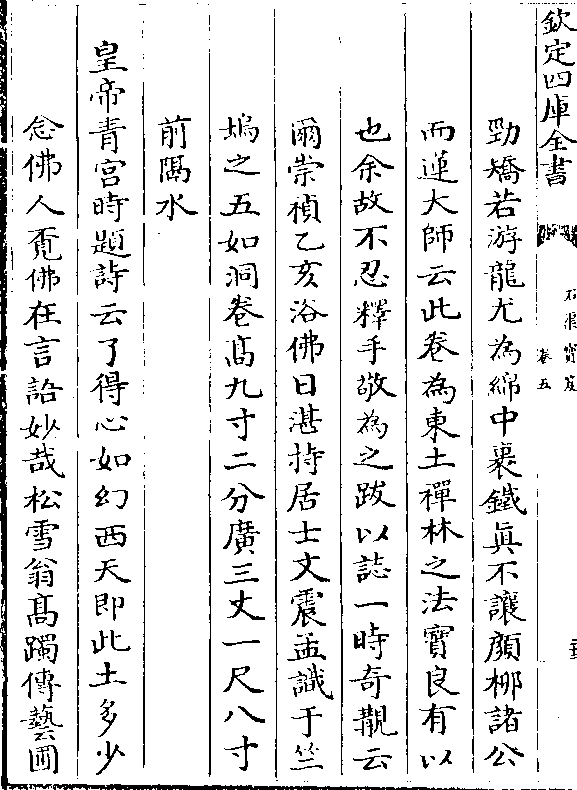 欽定四庫全書
石渠寶笈
卷五
勁矯若游龍尤為綿中裹鐵真不讓顔栁諸公
而蓮大師云此卷為東土禪林之法寶良有以
也余故不忍釋手敬為之跋以誌一時奇觀云
爾崇禎乙亥浴佛日湛持居士文震孟識于竺
塢之五如洞卷髙九寸二分廣三丈一尺八寸
前隔水
皇帝青宫時題詩云了得心如幻西天即此土多少
念佛人覔佛在言語妙哉松雪翁髙躅傳藝圃